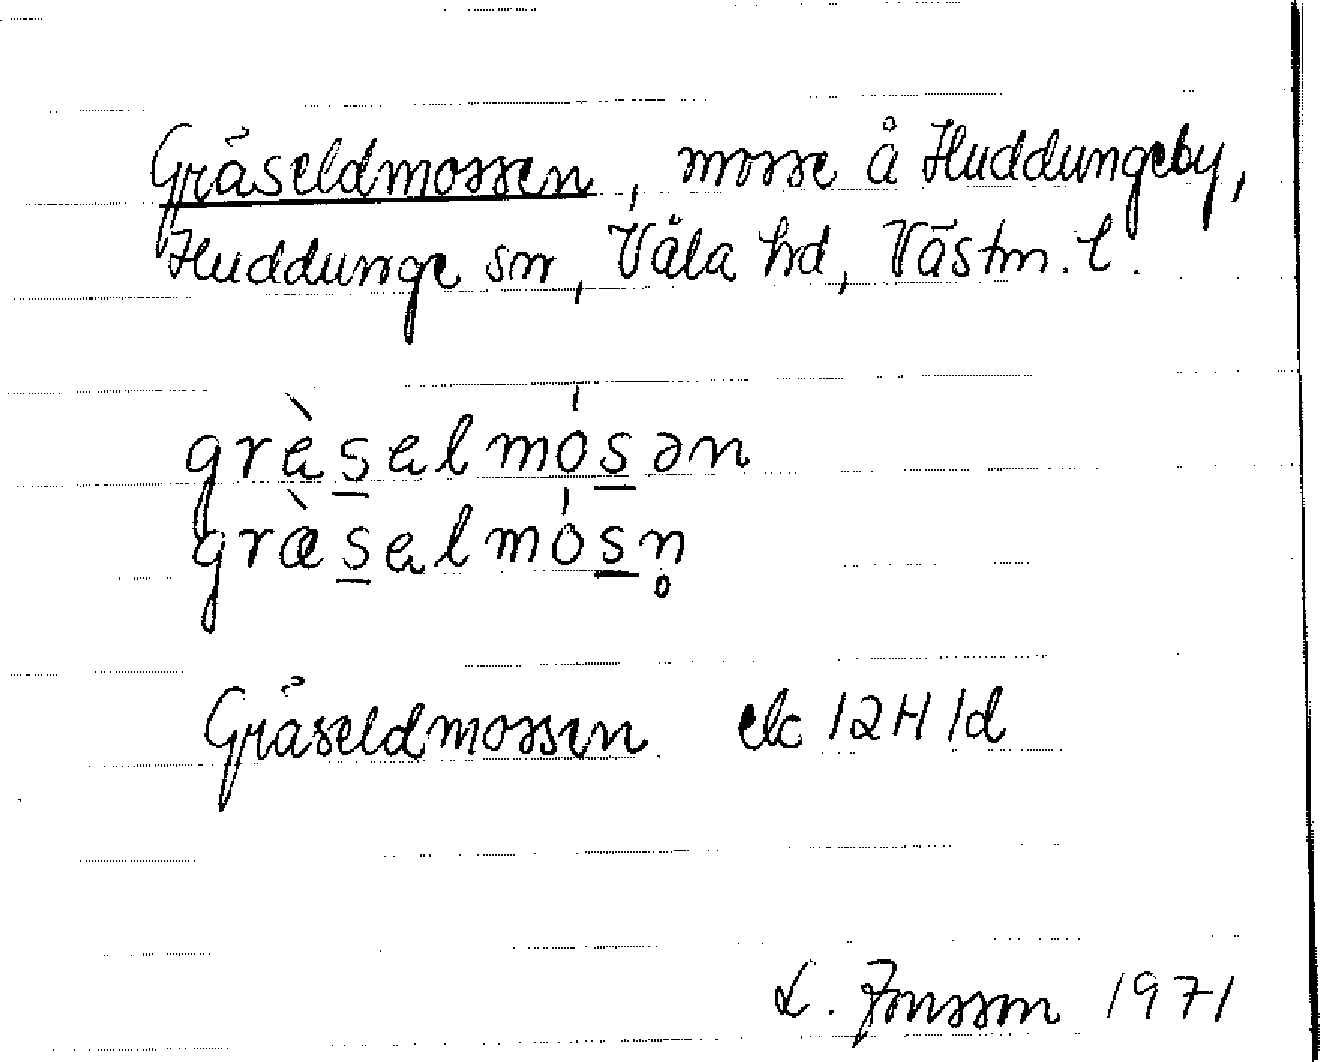 Gräseldmossen, mosse å Huddungeby,
Huddunge sn, Våla hd, Västm. l.
grèselmósən
græ̀selmósn̥
Gräseldmossen ek 12H 1d
L. Jonsson 1971